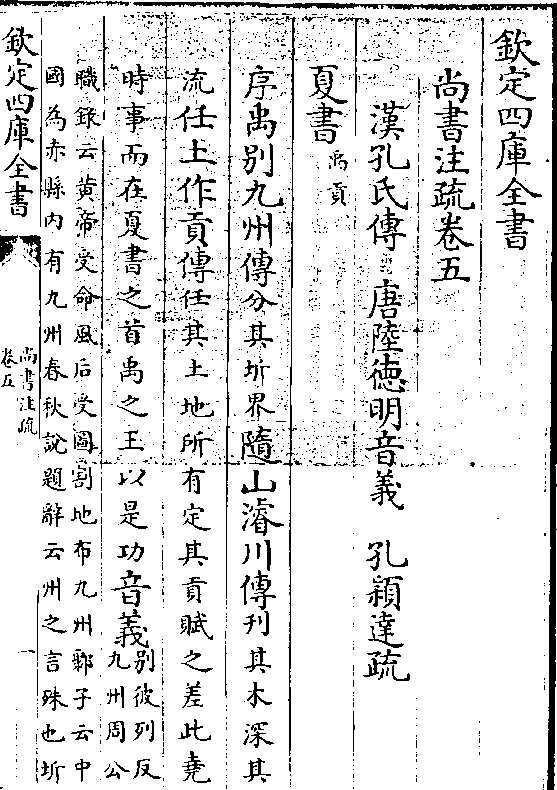 欽定四庫全書
尚書注疏卷五
漢孔氏傳 唐陸德明音義 孔穎達疏
夏書禹貢
序禹别九州傳分其圻界隨山濬川傳刋其木深其
流任土作貢傳任其土地所有定其貢賦之差此堯
時事而在夏書之首禹之王以是功音義别彼列反
九州周公
職錄云黄帝受命風后受圖割地布九州鄹子云中
國為赤縣内有九州春秋說題辭云州之言殊也圻
欽定四庫全書
尚書注疏
卷五
一